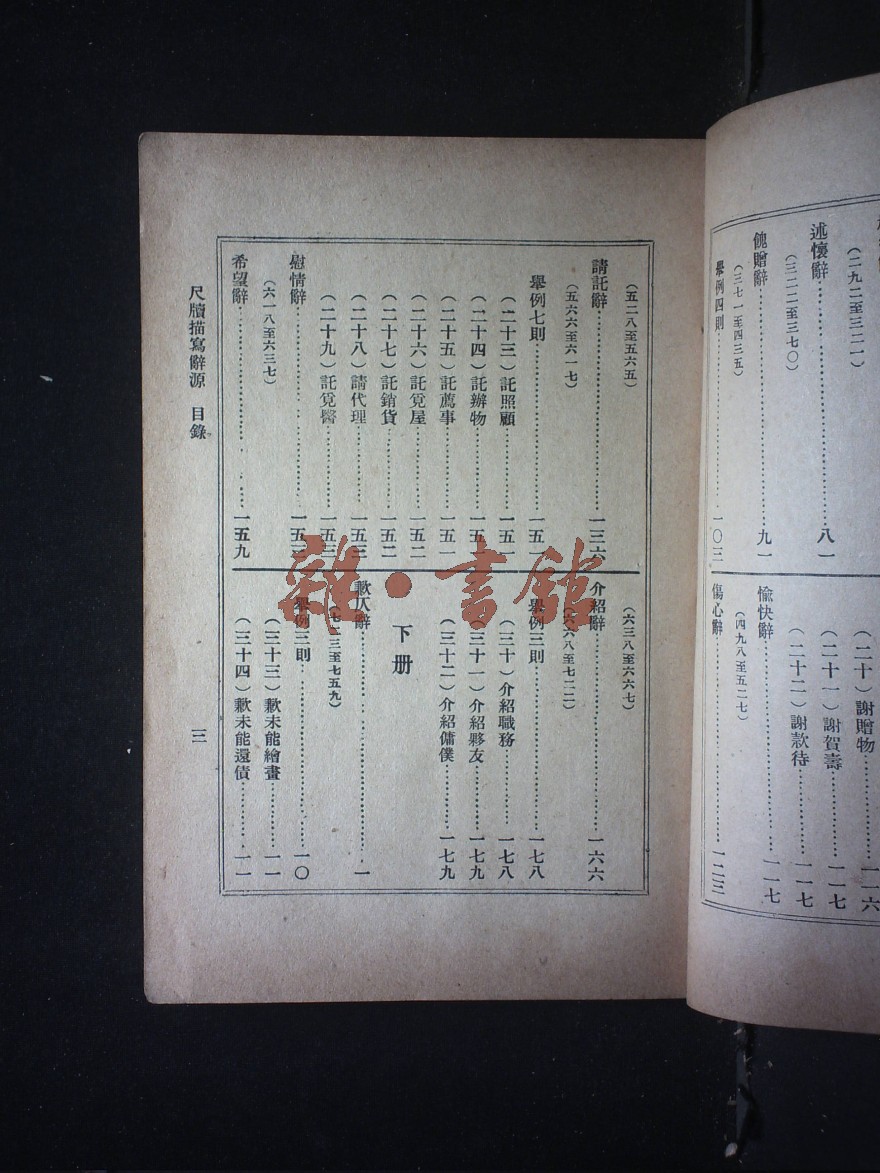 述懷辭 八一
（二九二至三二一）
（三二二至三七〇）
餽贈辭 九一
（三七一至四三五）
舉例四則 一〇三
（二十）謝贈物 一一六
（二十一）謝賀壽 一一七
（二十二）謝款待 一一七
愉快辭 一一七
（四九八至五二七）
傷心辭 一二三
（五二八至五六五）
請託辭 一三六
（五六六至六一七）
舉例七則 一五一
（二十三）託照顧 一五一
（二十四）託辦物 一五一
（二十五）託薦事 一五一
（二十六）託覓屋 一五二
（二十七）託銷貨 一五二
（二十八）請代理 一五三
（二十九）託覓醫 一五三
慰情辭 一五三
（六一八至六三七）
希望辭 一五九
（六三八至六六七）
介紹辭 一六六
（六六八至七二二）
舉例三則 一七八
（三十）介紹職務 一七八
（三十一）介紹夥友 一七九
（三十二）介紹傭僕 一七九
下册
歉仄辭 一
（七二三至七五九）
舉例三則 一〇
（三十三）歉未能繪畫 一一
（三十四）歉未能還債 一一
尺牘描寫辭源 目錄
三
雜·書館